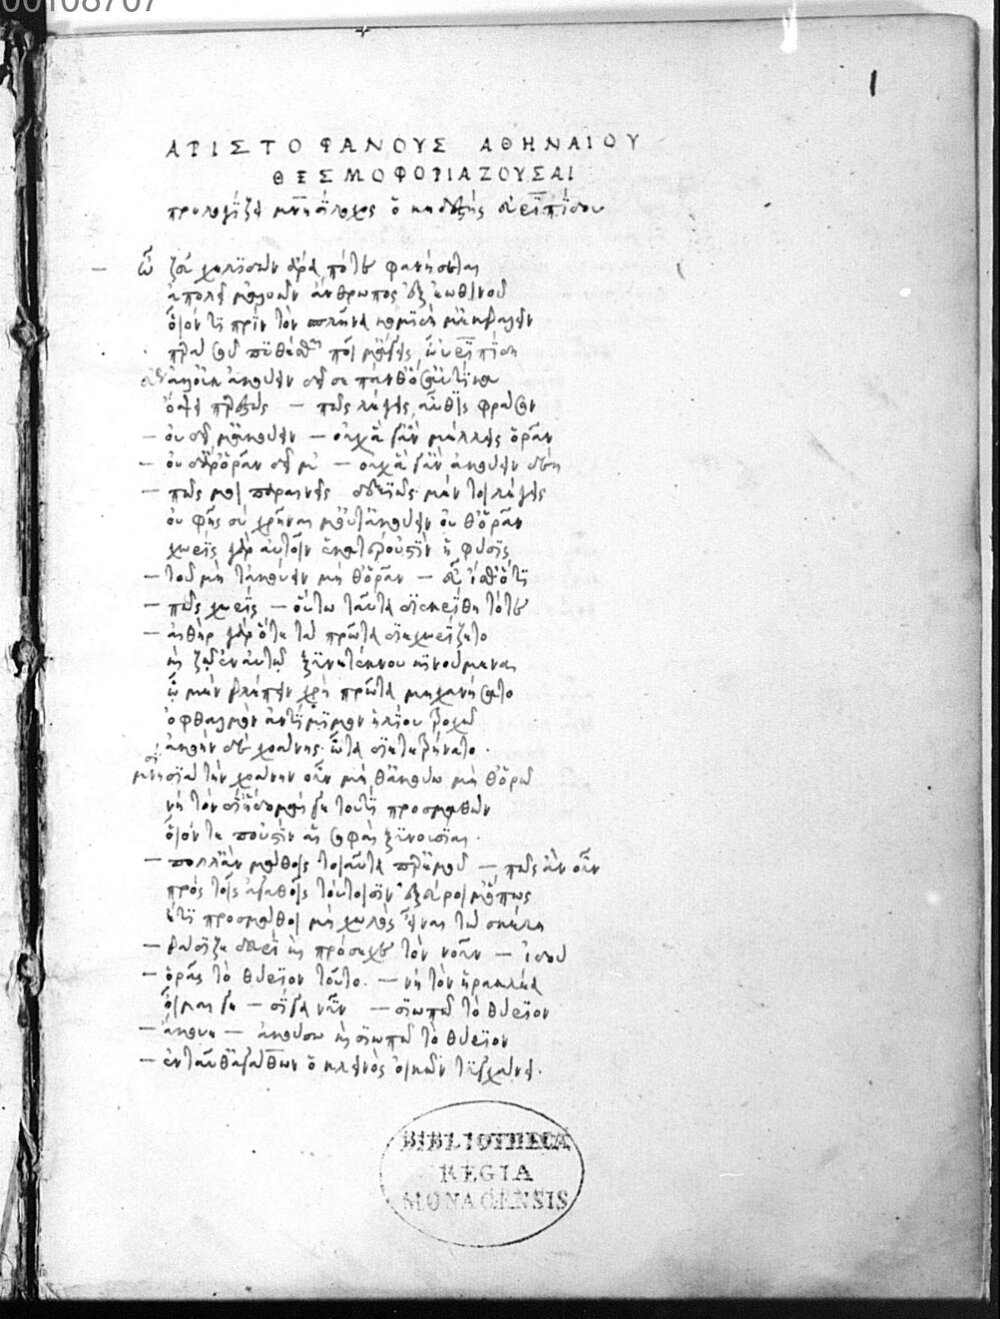 00108707
1
ΑΡΙΣΤΟΦΑΝΟΥΣ ΑΘΗΝΑΙΟΥ
ΘΕΣΜΟΦΟΡΙΑΖΟΥΣΑΙ
προλογίζει μνησίλοχος ὁ κηδεστὴς εὐριπίδου
– ὦ ζεῦ χελιδὼν ἆρά ποτε φανήσεται
ἀπολεῖ μ' ἀλοῶν ἄνθρωπος ἐξ ἑωθινοῦ
οἷόν τε πρὶν τὸν σπλῆνα κομιδῇ μ' ἐκβαλεῖν
παρὰ σοῦ πυθέσθαι ποῖ μ' ἄγεις ὦυριπίδη
εὐ ἀλλ' οὐκ ἀκούειν δεῖ σε πάνθ' ὅσ' αὐτίκα
ὄψει παρεστώς – πῶς λέγεις αὖθις φράσον
– οὐ δεῖ μ' ἀκούειν – οὐχ ἃ γ' ἂν μέλλῃς ὁρᾶν
– οὐδ' ἆρ' ὁρᾶν δεῖ μ' – οὐχ ἃ γ' ἂν ἀκούειν δέῃ
– πῶς μοι παραινεῖς δεξιῶς μέν τοι λέγεις
οὐ φῂς σὺ χρῆναι μ' οὔτ' ἀκούειν οὔθ' ὁρᾶν
χωρὶς γὰρ αὐτοῖν ἑκατέρου 'στὶν ἡ φύσις
– τοῦ μήτ' ἀκούειν μήθ' ὁρᾶν – εὖ ἴσθ' ὅτι
– πῶς χωρίς – οὕτω ταῦτα διεκρίθη τότε
– αἰθὴρ γὰρ ὅτε τὰ πρῶτα διεχωρίζετο
καὶ ζῷ' ἐν αὑτῷ ξυνετέκνου κινούμενα
ᾧ μὲν βλέπειν χρὴ πρῶτα μηχανήσατο
ὀφθαλμὸν ἀντίμιμον ἡλίου τροχῷ
ἀκοὴν δὲ χοάνης ὦτα διετετρήνατο
μνησ διὰ τὴν χοάνην οὖν μήτ' ἀκούω μήθ' ὁρῶ
νὴ τὸν δί' ἥδομαί γε τουτὶ προσμαθών
οἷόν τε πού 'στιν αἱ σοφαὶ ξυνουσίαι
– πόλλ' ἂν μάθοις τοιαῦτα παρ' ἐμοῦ – πῶς ἂν οὖν
πρὸς τοῖς ἀγαθοῖς τούτοισιν ἐξεύροιμ' ὅπως
ἔτι προσμάθοιμι χωλὸς εἶναι τὼ σκέλη
– βάδιζε δευρὶ καὶ πρόσεχε τὸν νοῦν – ἰδού
– ὁρᾷς τὸ θύριον τοῦτο – νὴ τὸν ἡρακλέα
οἶμαί γε – σίγα νῦν – σιωπῶ τὸ θύριον
– ἄκουε – ἀκούσω καὶ σιωπῶ τὸ θύριον
– ἐνταῦθ' ἀγάθων ὁ κλεινὸς οἰκῶν τυγχάνει
BIBLIOTHECA
REGIA
MONACENSIS